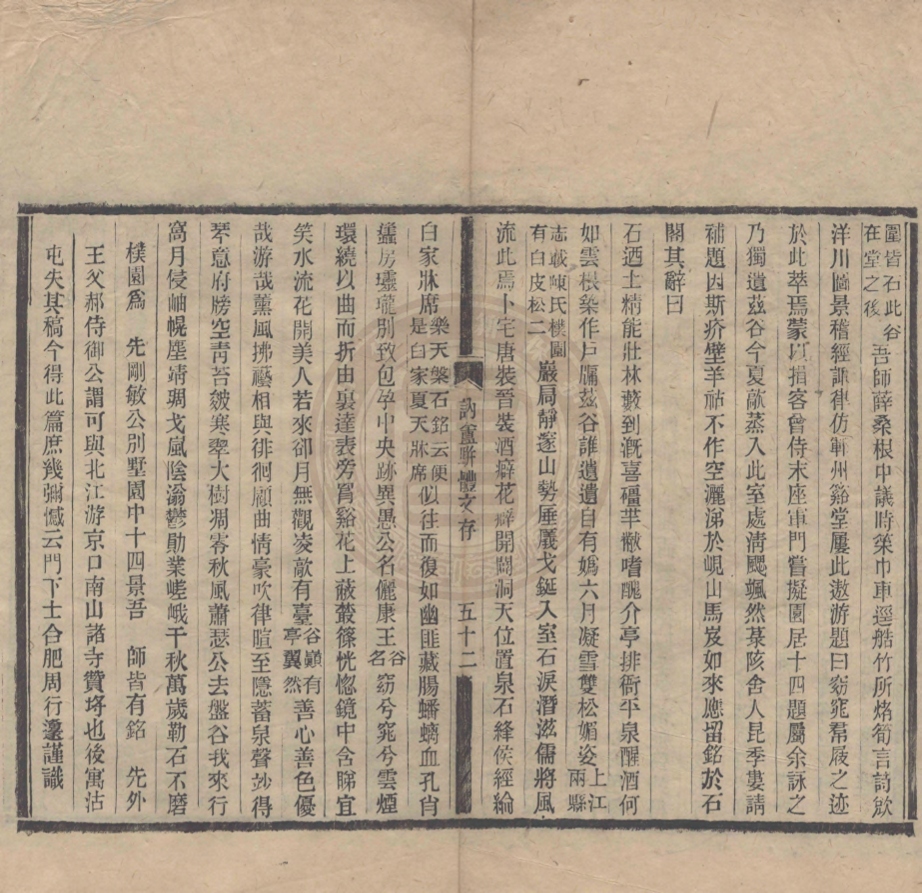 圍皆石此谷在堂之後吾師薛桑根中議時築巾車逕艁竹所烙筍言詩飲
洋川圖景稽經諏律仿鄆州谿堂屢此遨游題曰窈窕羣屐之迹
於此萃焉蒙以揖客曾侍末座軍門嘗擬園居十四題屬余詠之
乃獨遺茲谷今夏歊蒸入此室處淸颸颯然菉陔舍人昆季婁請
補題因斯疥壁羊祜不作空灑涕於峴山馬岌如來應留銘於石
閣其辭曰
石迺土精能壯林藪到溉喜礓芉黻嗜醜介亭排衙平泉醒酒何
如雲根染作戶牖茲谷誰遺遺自有嬀六月凝雪雙松媚姿上江兩縣
志載陳氏樸園有白皮松二巖扃靜邃山勢厜㕒戈鋋入室石淚潛滋儒將風
流此焉卜宅唐裝晉裝酒癖花癖開闢洞天位置泉石絳侯經綸
訥盦駢體文存 五十二
白家牀席樂天槃石銘云便是白家夏天牀席似往而復如幽匪藏腸蟠螭血孔肖
蠭房壚瓏別致包孕中央跡異愚公名儷康王谷名窈兮窕兮雲煙
環繞以曲而折由裏達表旁罥谿花上蔽叢篠恍惚鏡中含睇宜
笑水流花開美人若來卻月無觀凌歊有臺谷巓有亭翼然善心善色優
哉游哉薰風拂蓺相與徘徊顧曲情豪吹律暄至隱蓄泉聲妙得
琴意府牓空靑苔皴寒翠大樹凋零秋風蕭瑟公去盤谷我來行
窩月侵岫幌塵靖琱戈嵐陰滃鬱勛業嵯峨千秋萬歲勒石不磨
樸園爲 先剛敏公別墅園中十四景吾 師皆有銘 先外
王父郝侍御公謂可與北江游京口南山諸寺贊埒也後寓沽
屯失其稿今得此篇庶幾彌憾云門下士合肥周行謹識